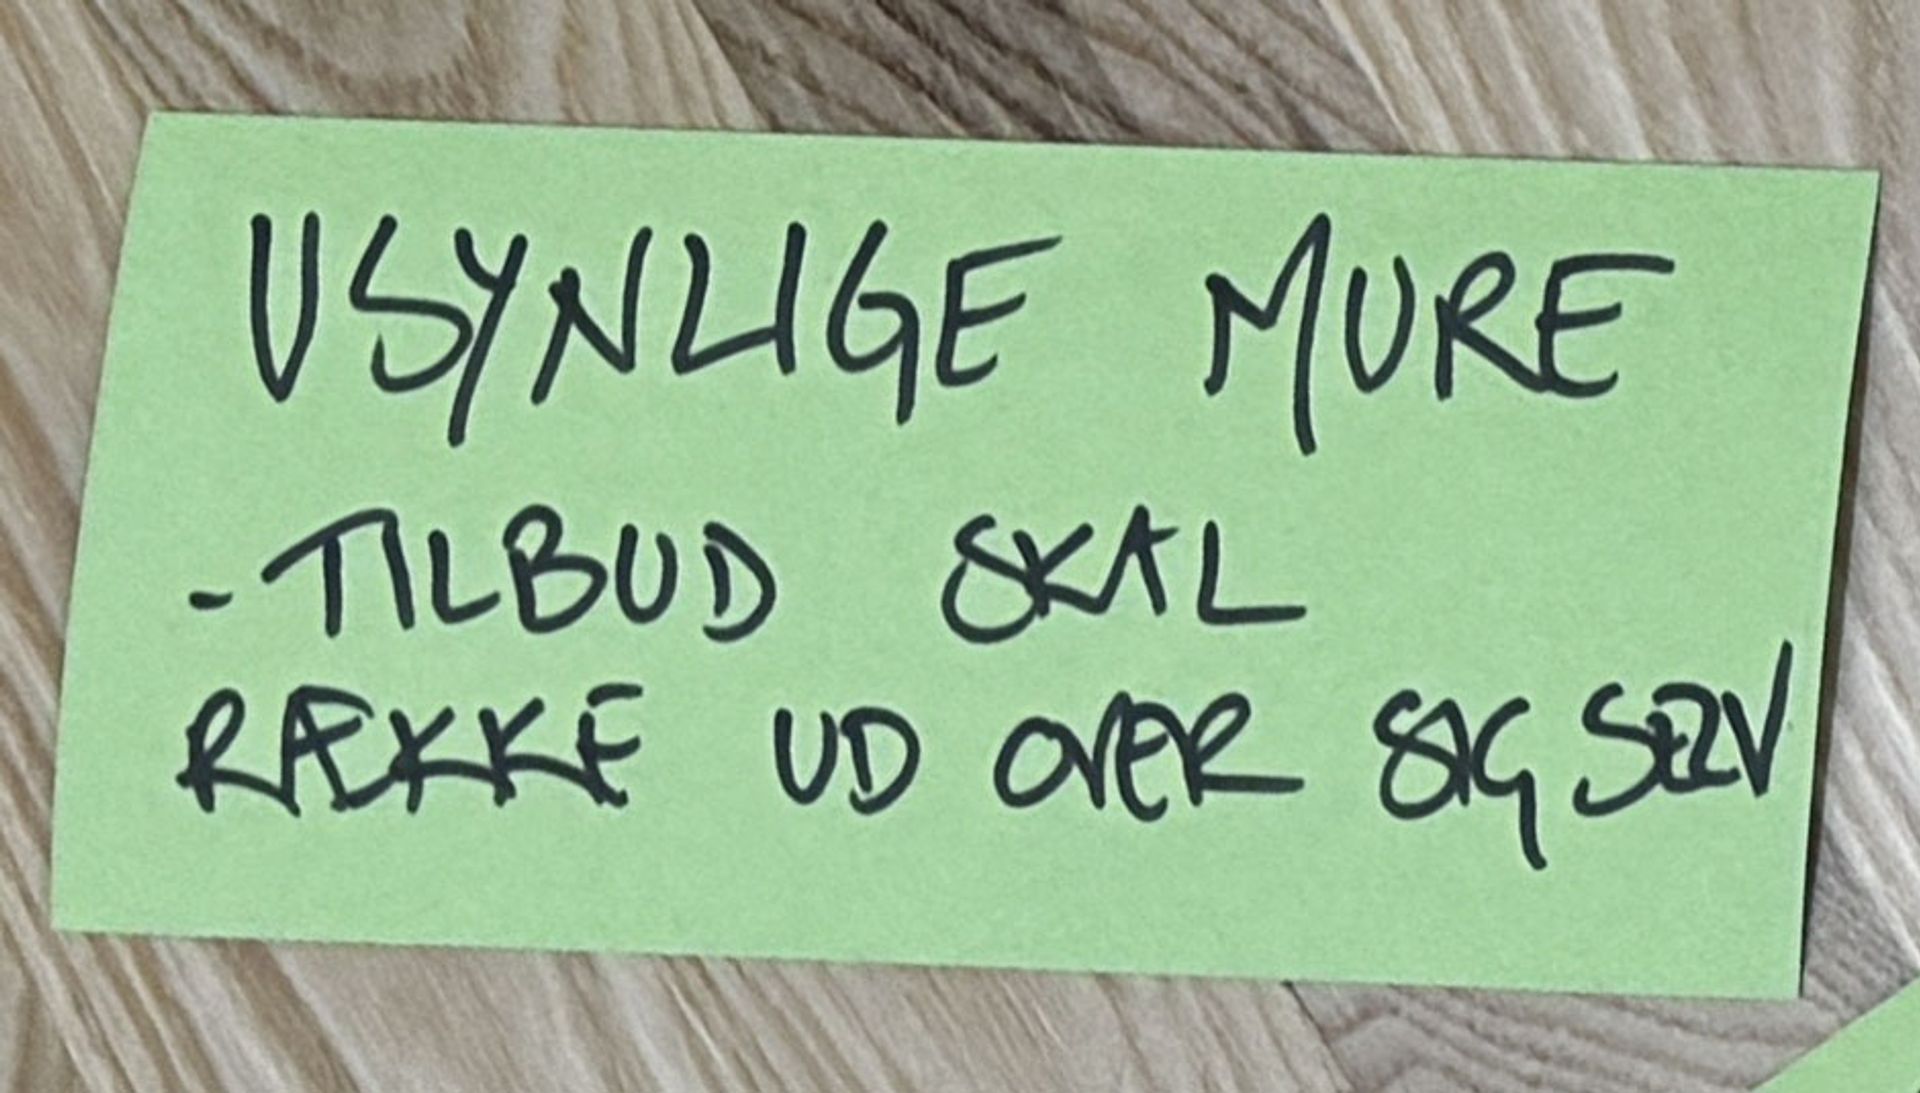 USYNLIGE MURE
- TILBUD SKAL
RÆKKE UD OVER SIG SELV